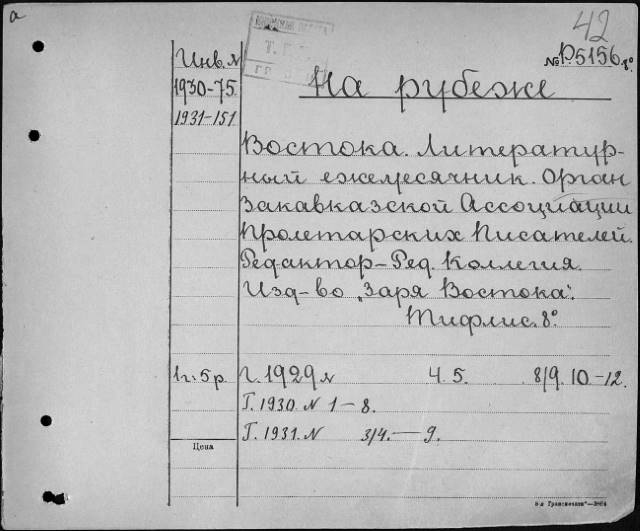 a
42
№ P5156 8°
Инв. №
1930-75
1931-151
На рубеже
Востока. Литератур-
ный ежемесячник. Орган
Закавказской Ассоциации
Пролетарских Писателей.
Редактор-Ред. Коллегия.
Изд-во „Заря Востока".
Тифлис. 8°
1г. 5р.
Г. 1929 № 4. 5. 8/9. 10-12.
Г. 1930. № 1-8.
Г. 1931. № 3/4. — 9.
Цена